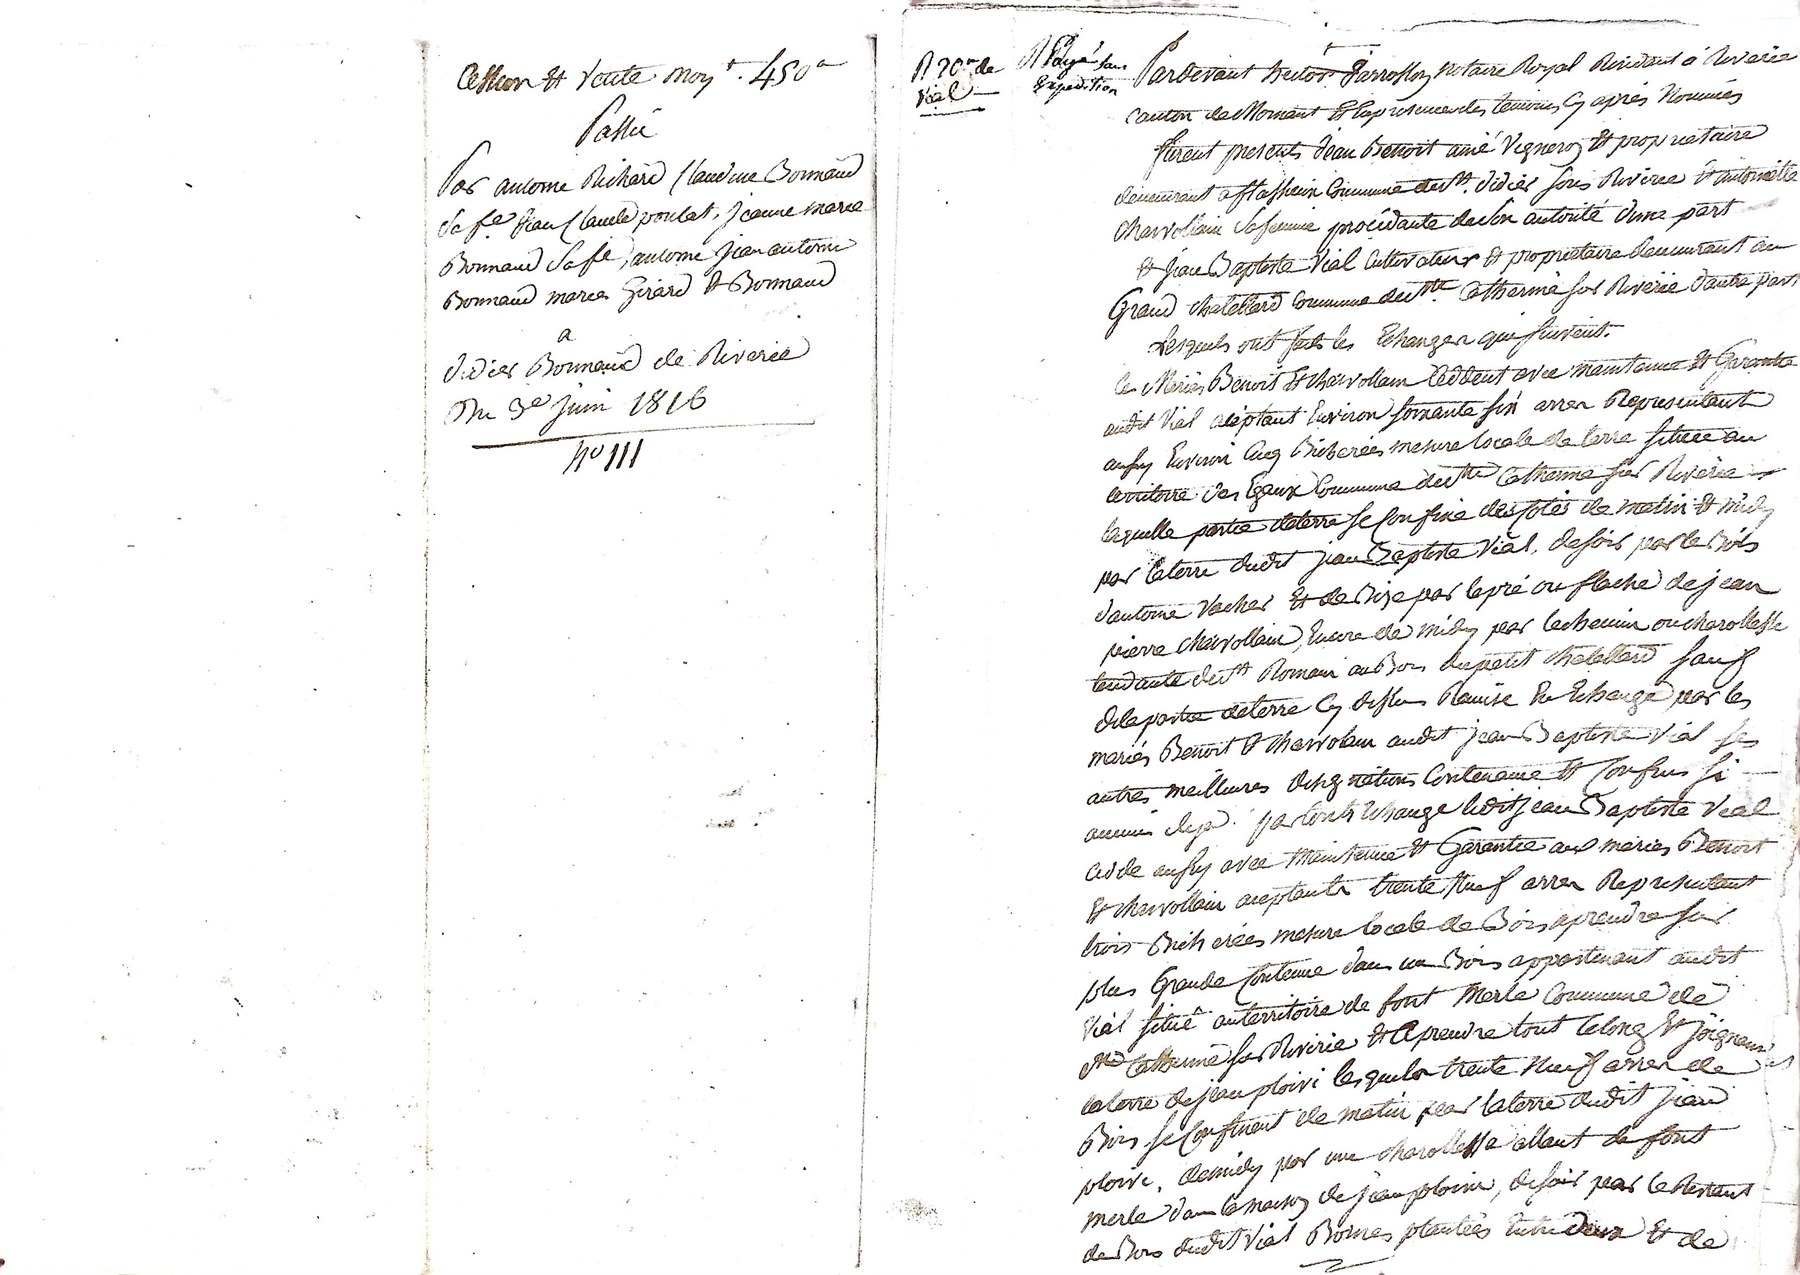 Cession & Vente moy.t 450 ff
Passé
Par antoine Richard Claudine Bonnand
sa fe jean Claude poulat, jeanne marie
Bonnand sa fe, antoine jean antoine
Bonnand marie Girard & Bonnand
a
didier Bonnand de Riverie
Du 3e juin 1816
No 111
Vial
R Payé sans
Expedition
Pardevant hector notaire Royal Residant à Riverie
canton de Mornant & En presence des temoins Cy après Nommés
furent presents jean Benoit ainé Vigneron & proprietaire
demeurant a Commune de St didier sous Riverie & antoinette
Charvollain sa femme procédante de son autorité d'une part
& jean Baptiste Vial Cultivateur & proprietaire demeurant au
Grand Chatellard Commune de Ste Catherine sur Riverie d'autre part
Lesquels ont fait les Echanges qui suivent.
les Mariés Benoit & Charvollain Cèddent avec maintenue & Garantie
audit Vial aceptant Environ soixante six arres Representant
ancien Environ Cinq Bicherées mesure locale de terre située au
territoire des Egaux Commune de Ste Catherine sur Riverie
laquelle partie de terre se Confine des cotés de matin & midy
par la terre dudit jean Baptiste Vial, de soir par le Bois
d'antoine Vacher & de Bize par le pré ou flache de jean
pierre Charvollain, Encore de midy par le chemin ou charollesse
tendante de St Romain au Bois du petit Chatellard sauf
de la partie de terre Cy dessus Remise En Echange par les
mariés Benoit & Charvolain audit jean Baptiste Vial ses
autres meilleures designations Contenance & Confins si
aucuns deja. par Contr'Echange ledit jean Baptiste Vial
cède aussy avec Maintenue & Garantie aux mariés Benoit
& Charvollain aceptants trente Neuf arres Representant
trois Bicherées mesure locale de Bois a prendre sur
plus Grande Contenue dans un Bois appartenant audit
Vial situé au territoire de font Merle Commune de
Ste Catherine sur Riverie & a prendre tout le long & joignant
la terre de jean ploivi lesquels trente Neuf arres de
Bois se Confinent de matin par la terre dudit jean
ploivi, de midy par une Charollesse allant de font
merle dans la maison de jean ploivi, de soir par le Restant
de Bois dudit Vial Bornes plantées Entre deux & de